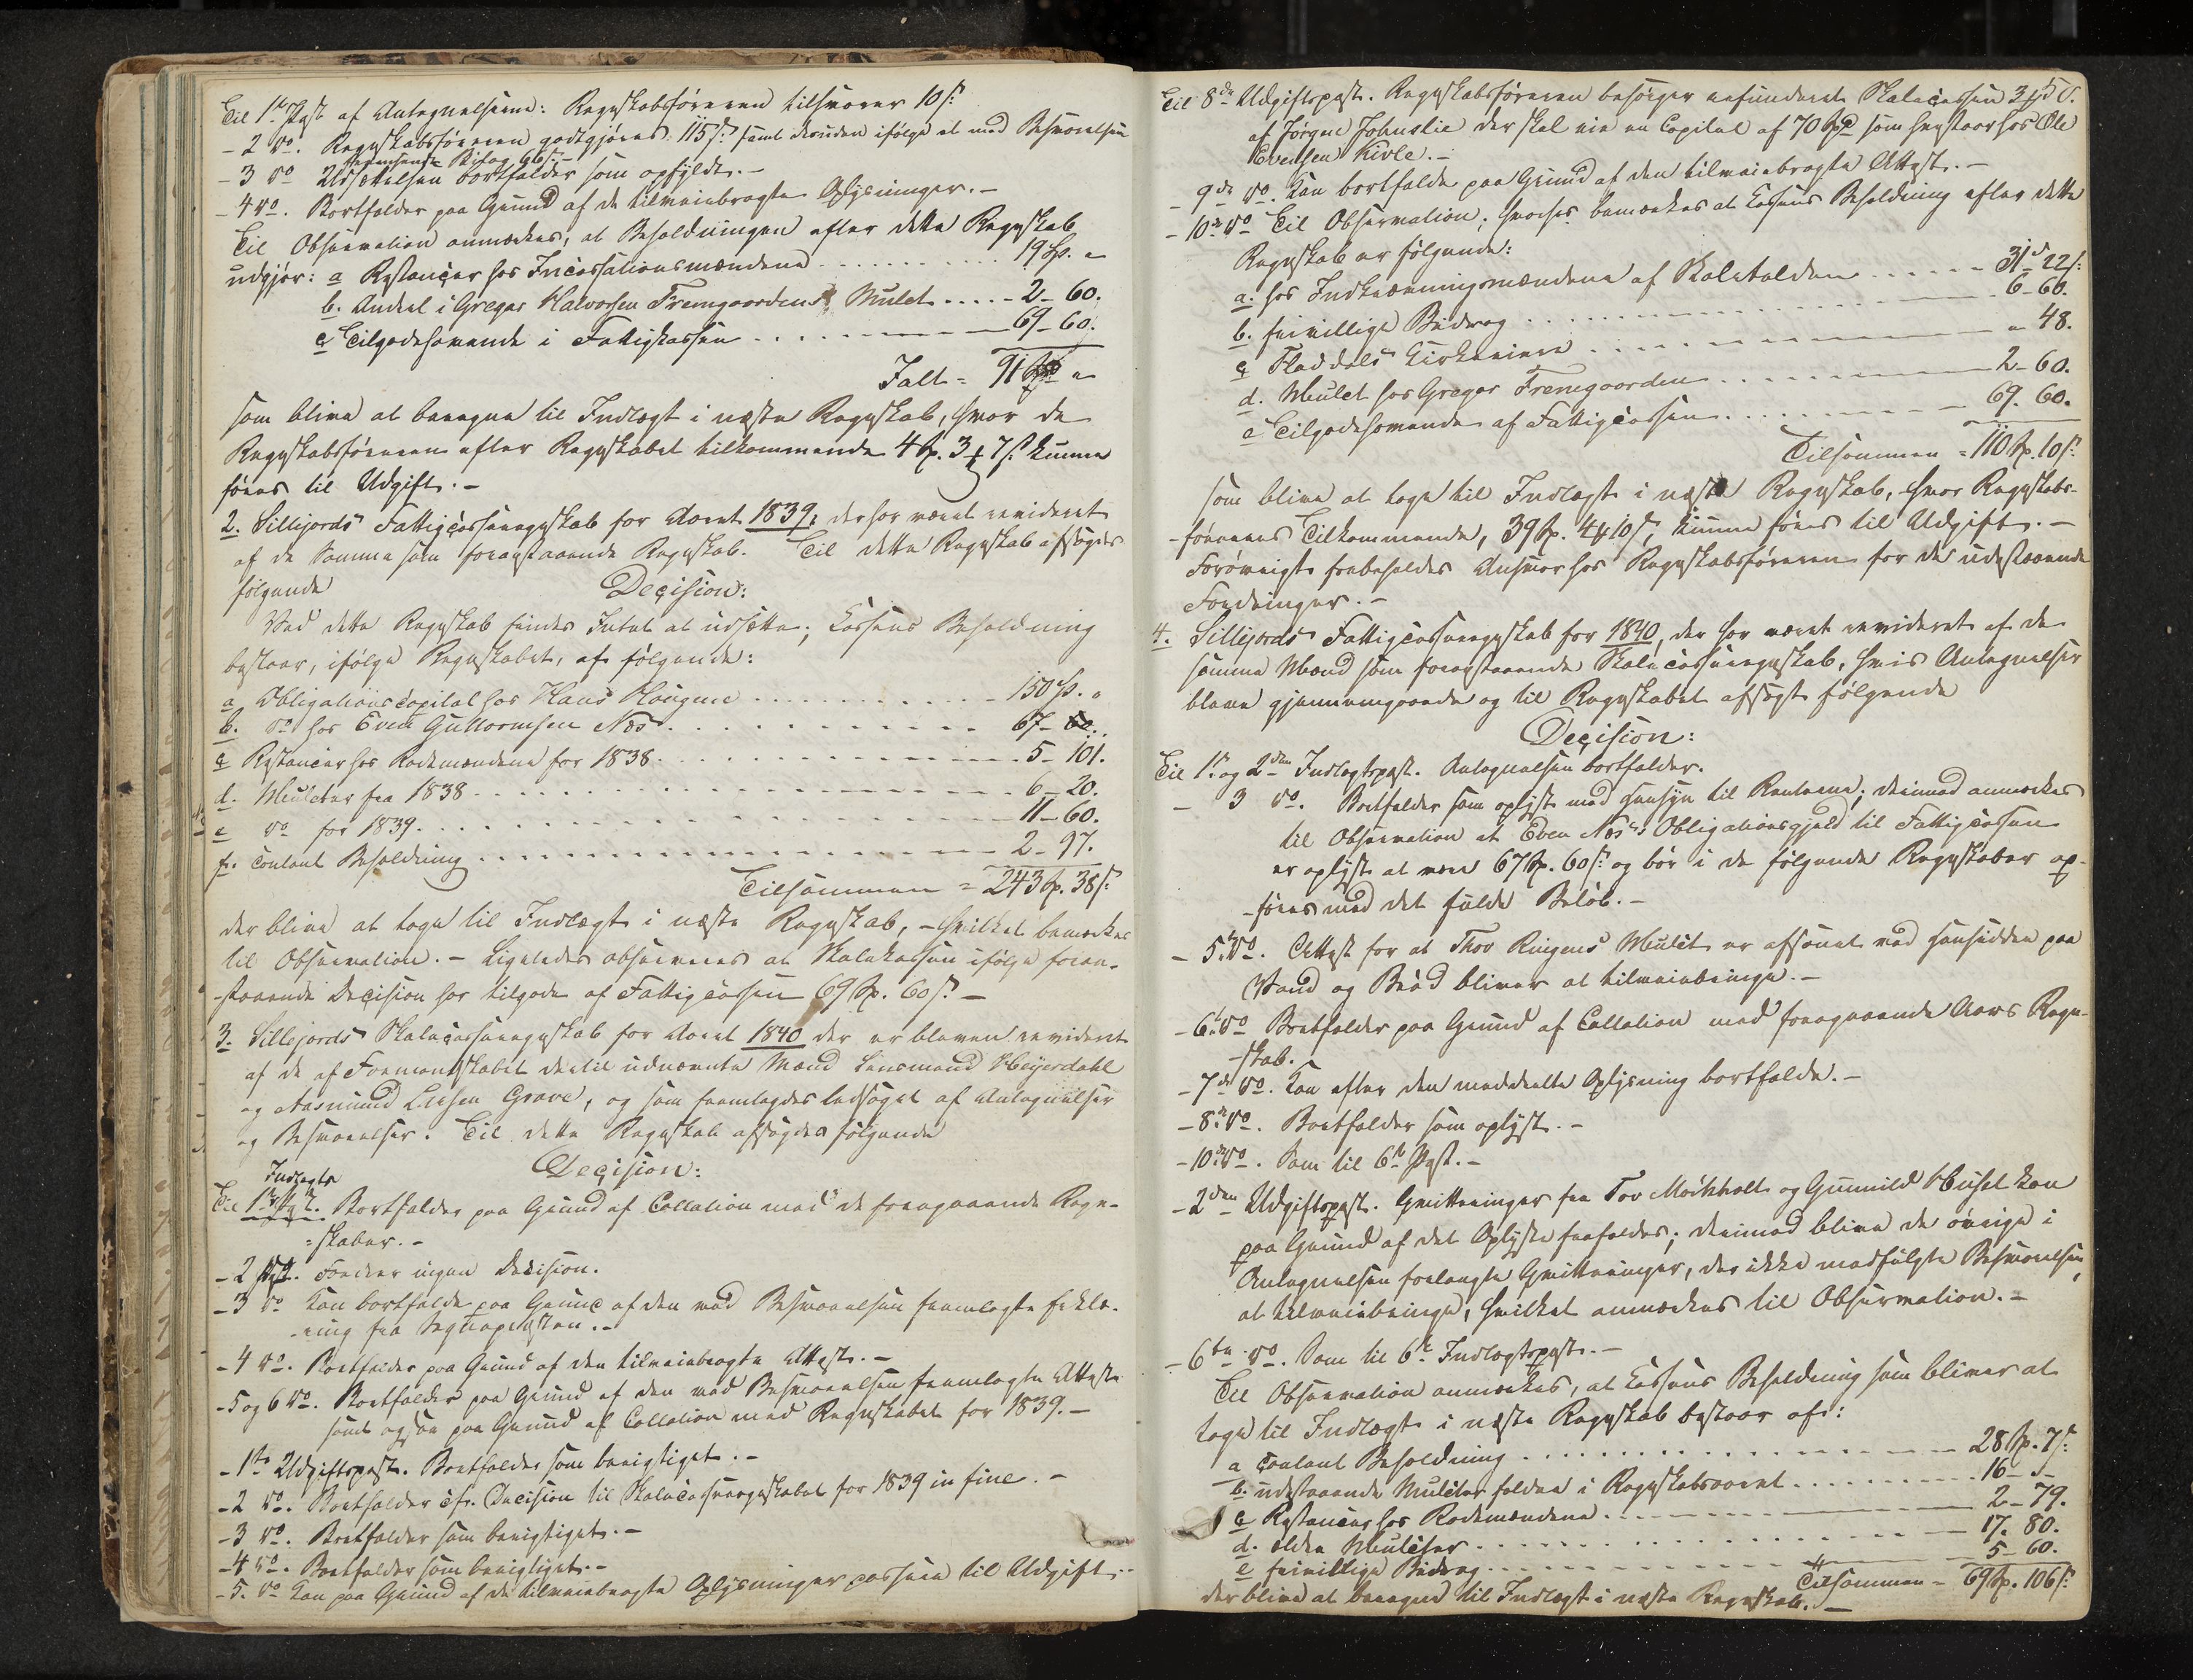 Til 1ste Post af Antegnelserne: Regnskabsføreren tilsvarer 10 s:
- 2 do. Regnskabsføreren godtgjøres 115 s: samt desuden ifølge et med Besvarelsen
fremsendt Bilag 96 s: -
- 3 do Udsættelsen bortfalder som opfyldt. -
- 4 do. Bortfalder paa Grund af de tilveiebragte Oplysninger. -
Til Observation anmærkes, at Beholdningen efter dette Regnskab
udgjør: a Restancer hos Incassationsmændene . . . . 19 Sp. "
b. Andeel i Gregar Halvorsen Fremgaardens Mulct . . . . - 2 - 60.
c Tilgodehavende i Fattigkassen . . . . 69 - 60.
Ialt = 91 Spd "
som blive at beregne til Indtægt i næste Regnskab, hvor de
Regnskabsføreren efter Regnskabet tilkommende 4 Sp. 3 # 7 s: kunne
føres til Udgift. -
2. Sillejords Fattigcasseregnskab for Aaret 1839, der har været revideret
af de Samme som foranstaaende Regnskab. Til dette Regnskab afsagdes
følgende Decision:
Ved dette Regnskab findes Intet at udsætte; Cassens Beholdning
bestaar, ifølge Regnskabet, af følgende:
a Obligationscapital hos Hans Haugene . . . . 150 Sp. "
b. do hos Even Guttormsen Næs . . . . 67 - 60.
c Restancer hos Rodemændene for 1838 . . . . 5 - 101.
d. Mulcter fra 1838 . . . . 6 - 20.
e do for 1839 . . . . 11 - 60.
f. contant Beholdning . . . . 2 - 97.
Tilsammen = 243 Sp. 38 s:
der blive at tage til Indtægt i næste Regnskab, - hvilket bemærkes
til Observation. - Ligeledes observeres at Skolekassen ifølge foran-
-staaende Decision har tilgode af Fattigcassen 69 Sp. 60 s. -
3. Sillejords Skolecasseregnskab for Aaret 1840 der er bleven revideret
af de af Formandskabet dertil udnævnte Mænd Lensmand Heyerdahl
og Aasmund Liesen Grave, og som fremlagdes ledsaget af Antegnelser
og Besvarelser. Til dette Regnskab afsagdes følgende
Decision:
Indtægts
Til 1ste Post. Bortfalder paa Grund af Collation med de foregaaende Regn-
=skaber. -
- 2 Post. Fordrer ingen Decision.
- 3 do Kan bortfalde paa Grund af den med Besvarelsen fremlagte Erklæ-
-ring fra Sognepræsten. -
- 4 do. Bortfalder paa Grund af den tilveiebragte Attest. -
- 5 og 6 do. Bortfalder paa Grund af den med Besvarelsen fremlagte Attest
samt ogsaa paa Grund af Collation med Regnskabet for 1839. -
- 1ste Udgiftspost. Bortfalder som berigtiget. -
- 2 do. Bortfalder cfr. Decision til Skolecasseregnskabet for 1839 in fine. -
- 3 do. Bortfalder som berigtiget. -
- 4 do. Bortfalder som berigtiget. -
- 5. do Kan paa Grund af de tilveiebragte Oplysninger passere til Udgift. -
Til 8de Udgiftspost. Regnskabsføreren besørger refunderet Skolecassen 3
af Jørgen Johnslie der skal eie en Capital af 70 Spd som henstaar hos Ole
Evensen Kivle. -
- 9de do. Kan bortfalde paa Grund af den tilveiebragte Attest. -
- 10de do Til Observation; hvorhos bemærkes at Cassens Beholdning efter dette
Regnskab er følgende:
a. hos Inddrivningsmændene af Skoletolden . . . . 31 - 22 s:
b. frivillige Bidrag . . . . 6 - 60.
c Fladdals Kirkeeiere . . . . " 48.
d. Mulct hos Gregar Fremgaarden . . . . 2 - 60.
e Tilgodehavende af Fattigcassen . . . . 69. 60.
Tilsammen = 110 Sp. 10 s:
som blive at tage til Indtægt i næste Regnskab, hvor Regnskabs-
-førerens Tilkommende, 39 Sp. 4 # 10 s, kunne føres til Udgift. -
Forøvrigt forbeholdes Ansvar hos Regnskabsføreren for de udestaaende
Fordringer. -
4. Sillejords Fattigcasseregnskab for 1840, der har været revideret af de
samme Mænd som foranstaaende Skolecasseregnskab, hvis Antegnelser
bleve gjennemgaaede og til Regnskabet afsagt følgende
Decision:
Til 1ste og 2den Indtægtspost. Antegnelsen bortfalder.
- 3 do. Bortfalder som oplyst med Hensyn til Renterne; derimod anmærkes
til Observation at Even Næs's Obligationsgjæld til Fattigcassen
er oplyst at være 67 Sp. 60 s: og bør i de følgende Regnskaber op-
-føres med det fulde Beløb. -
- 5te do. Attest for at Thor Ringens Mulct er afsonet ved Hensidden paa
Vand og Brød bliver at tilveiebringe. -
- 6te do Bortfalder paa Grund af Collation med foregaaende Aars Regn-
-skab.
- 7de do. Kan efter den meddeelte Oplysning bortfalde. -
- 8de do. Bortfalder som oplyst. -
- 10de do. Som til 6te Post. -
- 2den Udgiftspost. Qvitteringer fra Tov Mørkholt og Gunnild Huset kan
paa Grund af det Oplyste frafaldes; derimod blive de øvrige i
Antegnelsen forlangte Qvitteringer, der ikke medfulgte Besvarelsen,
at tilveiebringe, hvilket anmærkes til Observation. -
- 6te do. Som til 6te Indtægtspost. -
Til Observation anmærkes, at Cassens Beholdning som bliver at
tage til Indtægt i næste Regnskab bestaar af:
a contant Beholdning . . . . 28 Sp. 7 s:
b. udestaaende Mulcter faldne i Regnskabsaaret . . . . 16 - " -
c Restancer hos Rodemændene . . . . 2 - 79.
d. ældre Mulcter . . . . 17. 80.
e frivillige Bidrag . . . . 5 - 60.
Tilsammen = 69 Sp. 106 s:
der blive at beregne til Indtægt i næste Regnskab. -